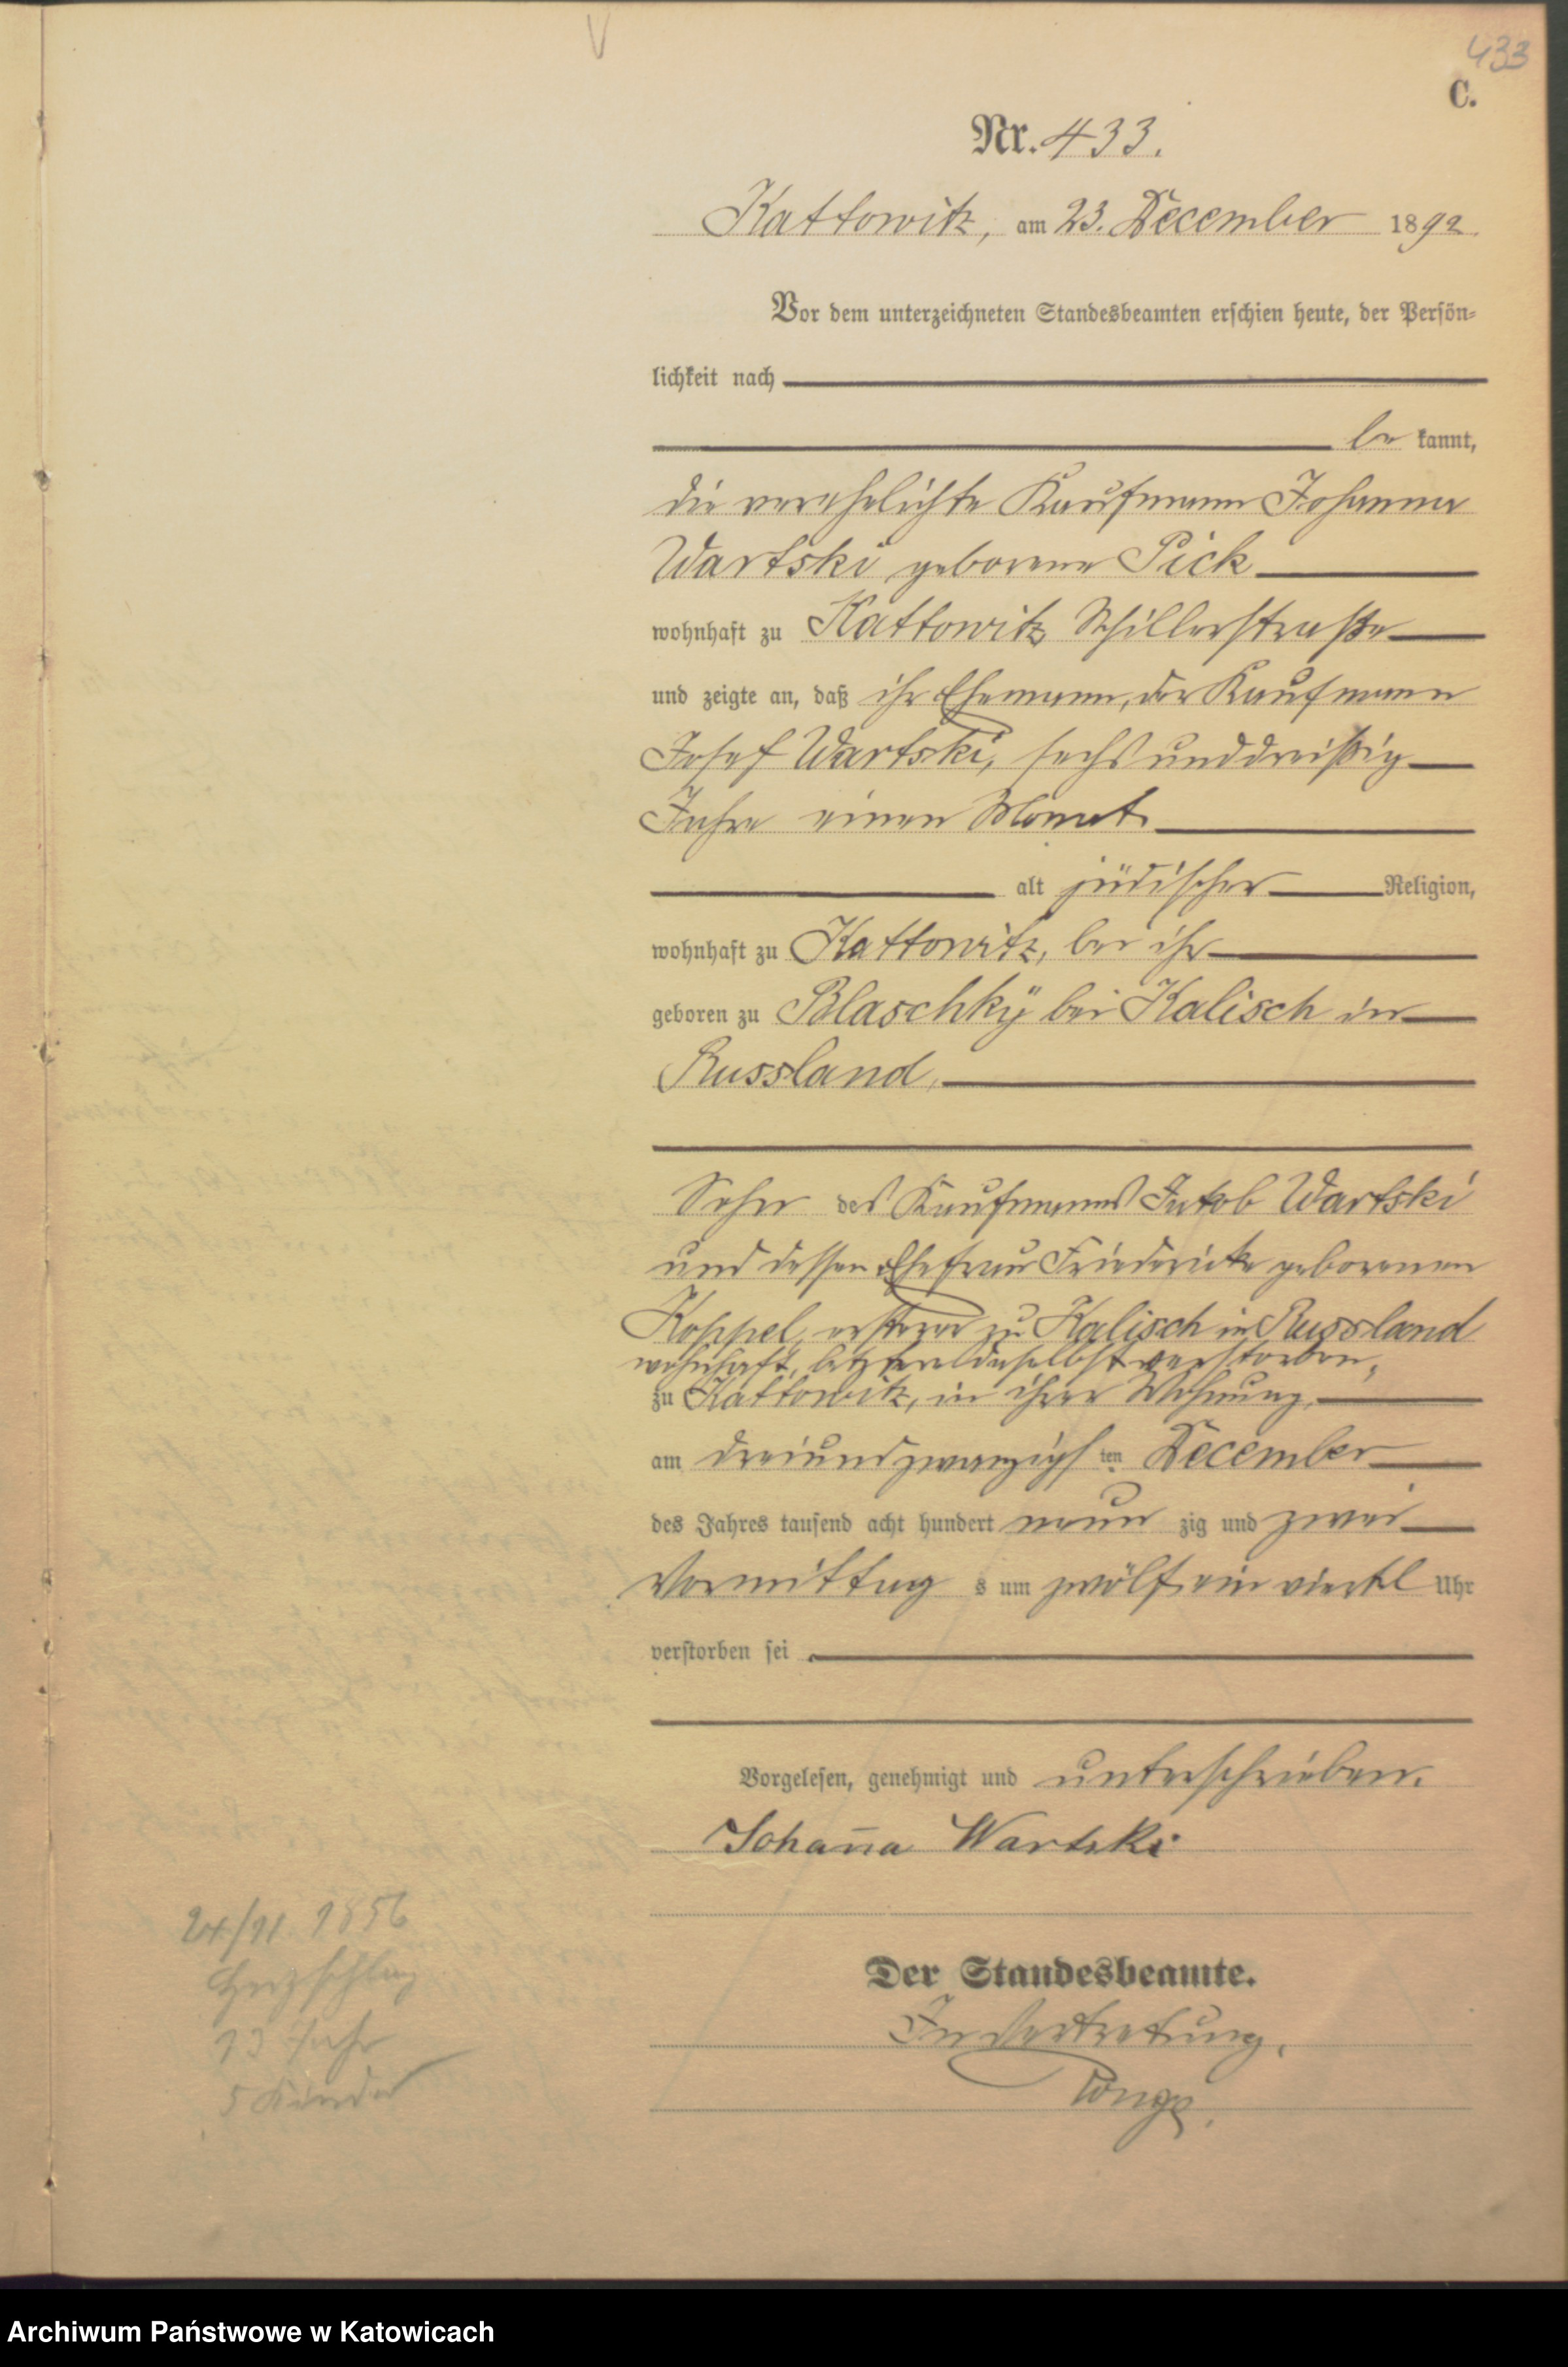 433
C.
Nr. 433.
Kattowitz, am 23. December 1892.
Vor dem unterzeichneten Standesbeamten erschien heute, der Persön-
lichkeit nach
be kannt,
die verehelichte Kaufmann Johanna
Wartski geborene Pick
wohnhaft zu Kattowitz Schillerstraße
und zeigte an, daß ihr Ehemann, der Kaufmann
Josef Wartski, sechs unddreißig
Jahre einen Monat
alt jüdischer Religion,
wohnhaft zu Kattowitz, bei ihr
geboren zu Blaschkÿ bei Kalisch in
Russland,
Sohn des Kaufmanns Jakob Wartski
und dessen Ehefrau Friedericke geborenen
Koppel, ersterer zu Kalisch in Russland
wohnhaft, letztere daselbst verstorben,
zu Kattowitz, in ihrer Wohnung,
am dreiundzwanzigs ten December
des Jahres tausend acht hundert neun zig und zwei
Vormittag s um zwölf ein viertel Uhr
verstorben sei
Vorgelesen, genehmigt und unterschrieben.
Johan̄a Wartski
24/11. 1856
Herzschlag
13 Jahr
5 Kinder
Der Standesbeamte.
In Vertretung,
Archiwum Państwowe w Katowicach